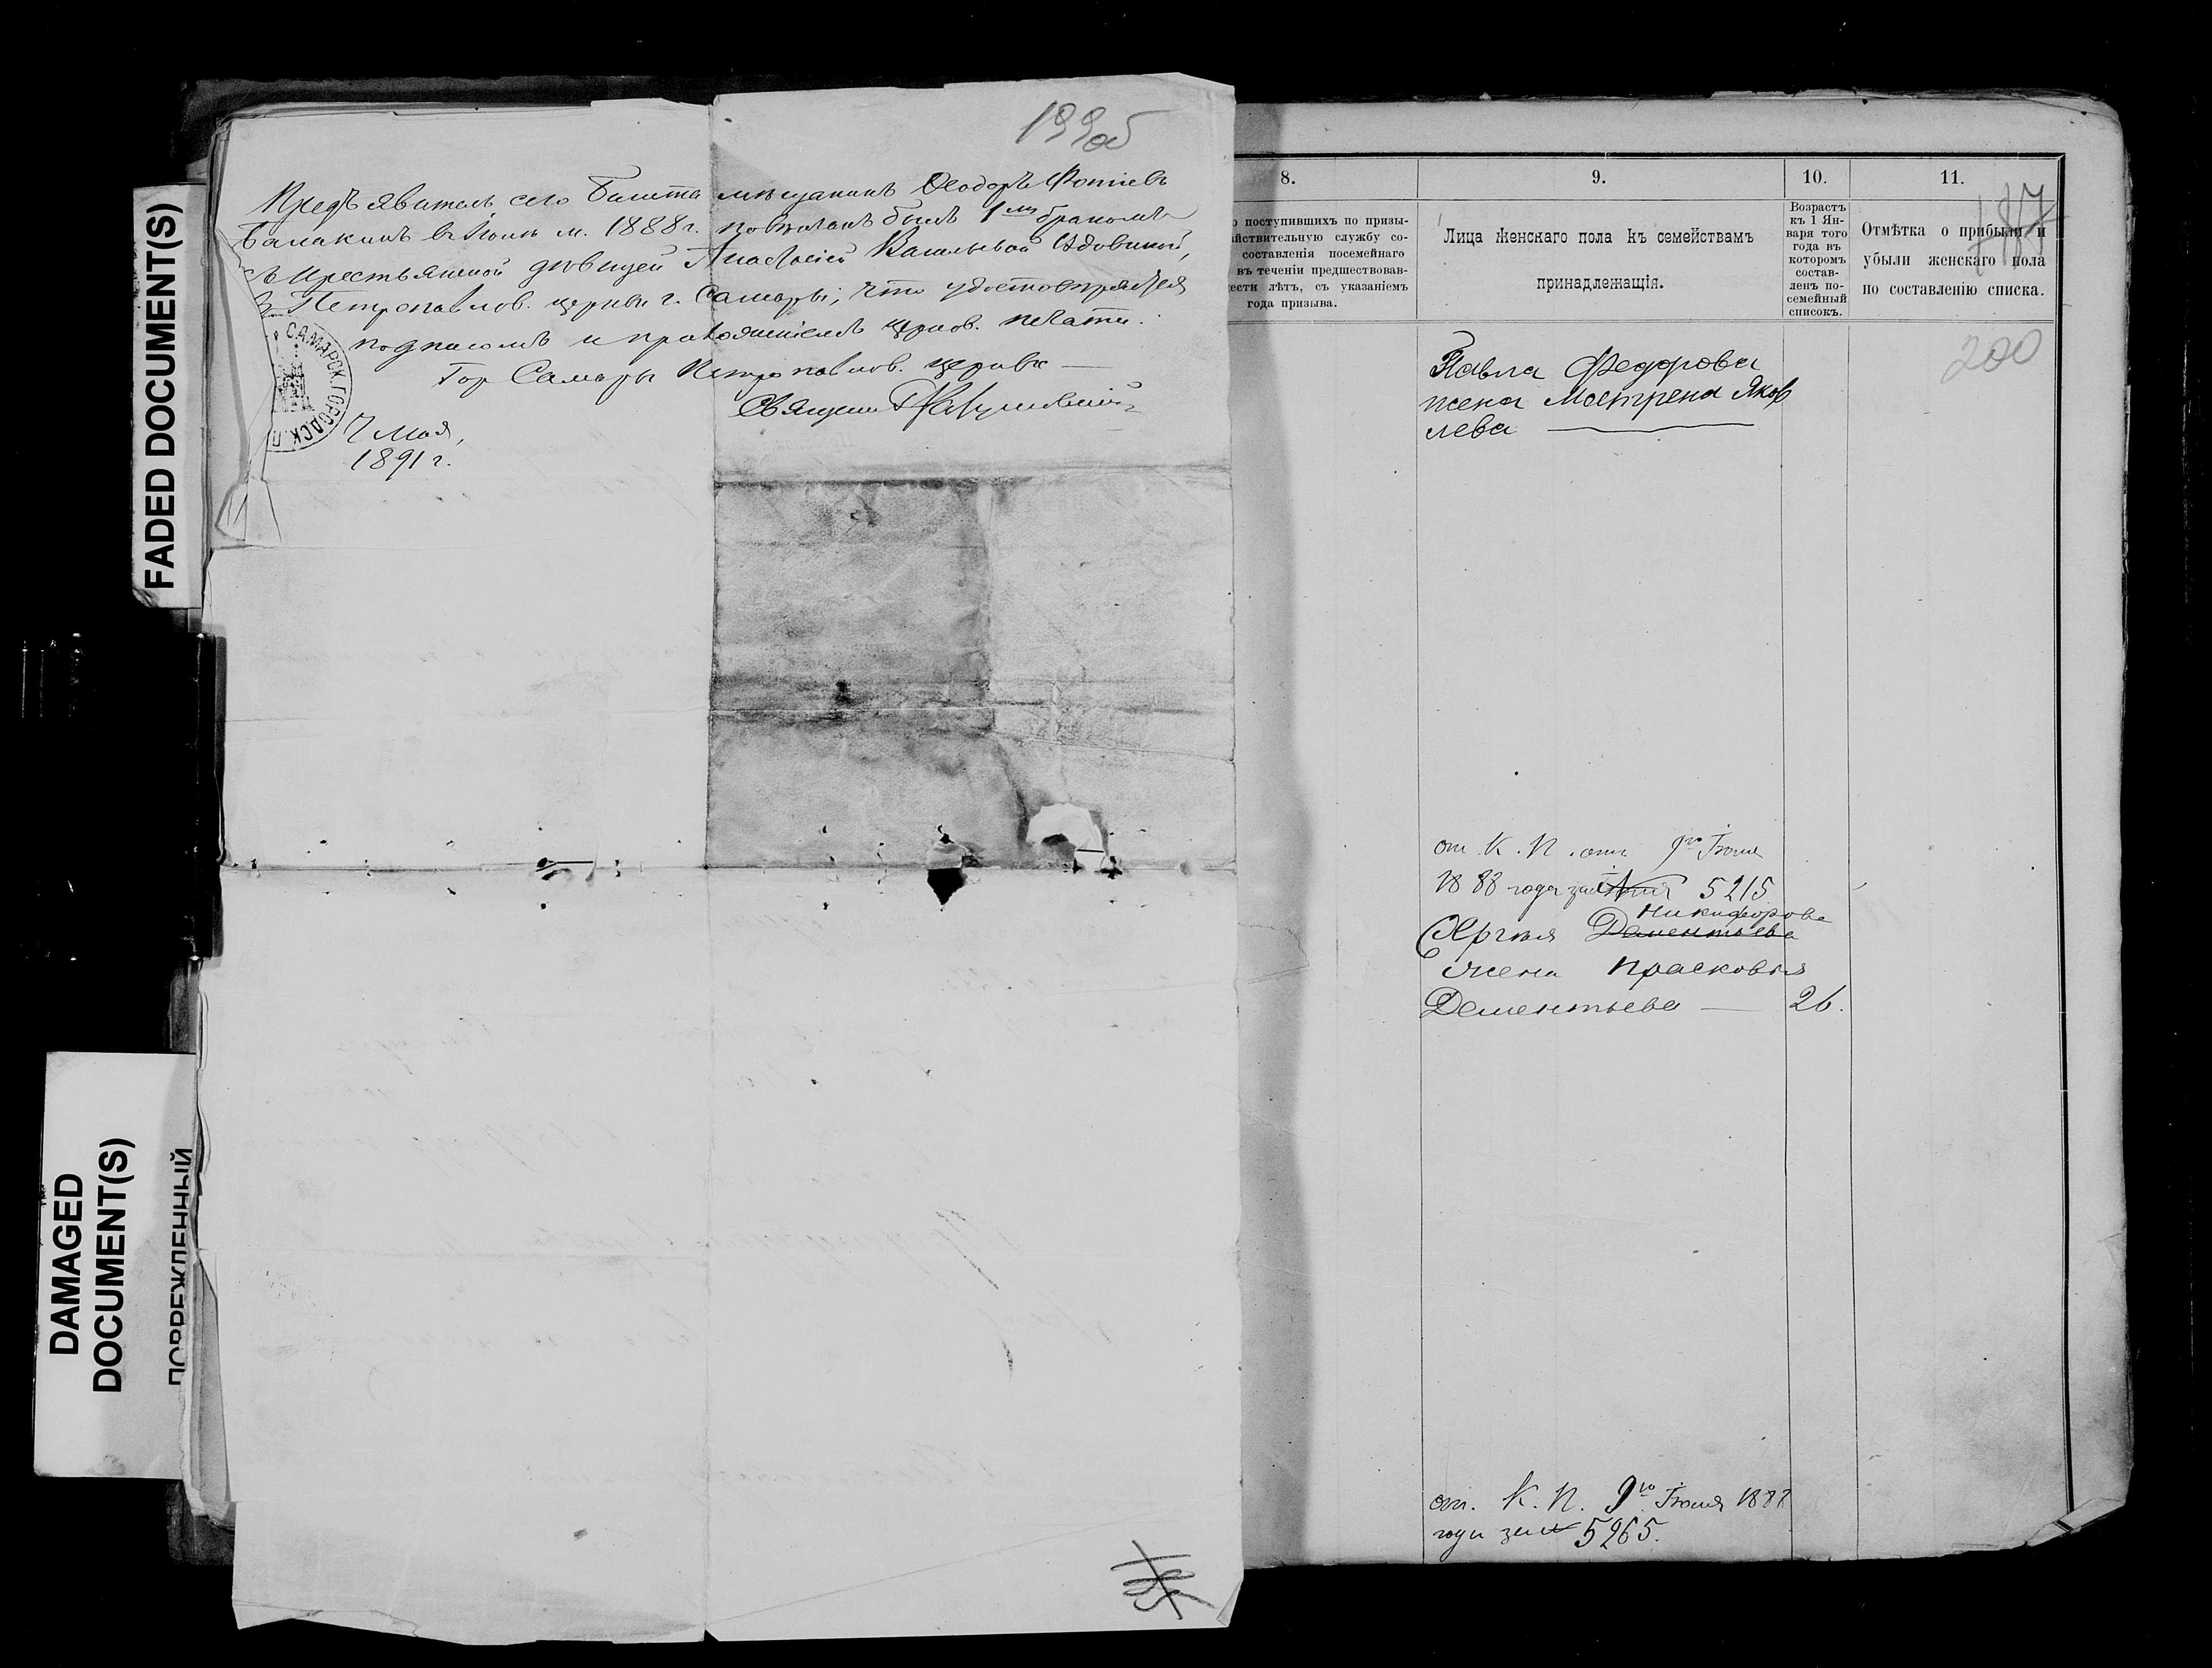 FADED DOCUMENT(S)
DAMAGED
DOCUMENT(S)
ПОВРЕЖДЕННЫЙ
199об
Предъявитель сего билета мѣщанинъ Ѳеодоръ Фотіевъ
Балакинъ в Іюлѣ м. 1888 г. повѣнчанъ былъ 1мъ бракомъ
съ крестьянской дѣвицей Анастасіей Васильевой Вдовиной,
в Петропавлов. церкви г. Самары, что удостовѣряется
подписомъ и приложеніемъ церков. печати.
Гор Самары Петропавлов. церкви
Священ
САМАРСК. ГОРОДСК. П
7 Мая,
1891 г.
8.
поступившихъ по призы-
йствительную службу со-
составленія посемейнаго
въ теченіи предшествовав-
ести лѣтъ, съ указаніемъ
года призыва.
9.
Лица женскаго пола къ семействамъ
принадлежащія.
10.
Возрастъ
къ 1 Ян-
варя того
года въ
которомъ
состав-
ленъ по-
семейный
списокъ.
11.
Отмѣтка о прибыли и
убыли женскаго пола
по составленію списка.
200
Павла Федорова
жена Матрена Яков
лева
от К. П. отъ 9го Іюня
1888 года за № 5215
Никифорова
Сергѣя Дементьева
жена Прасковья
Дементьева — 26.
от. К. П. 9го Іюня 1888
года за № 5265.